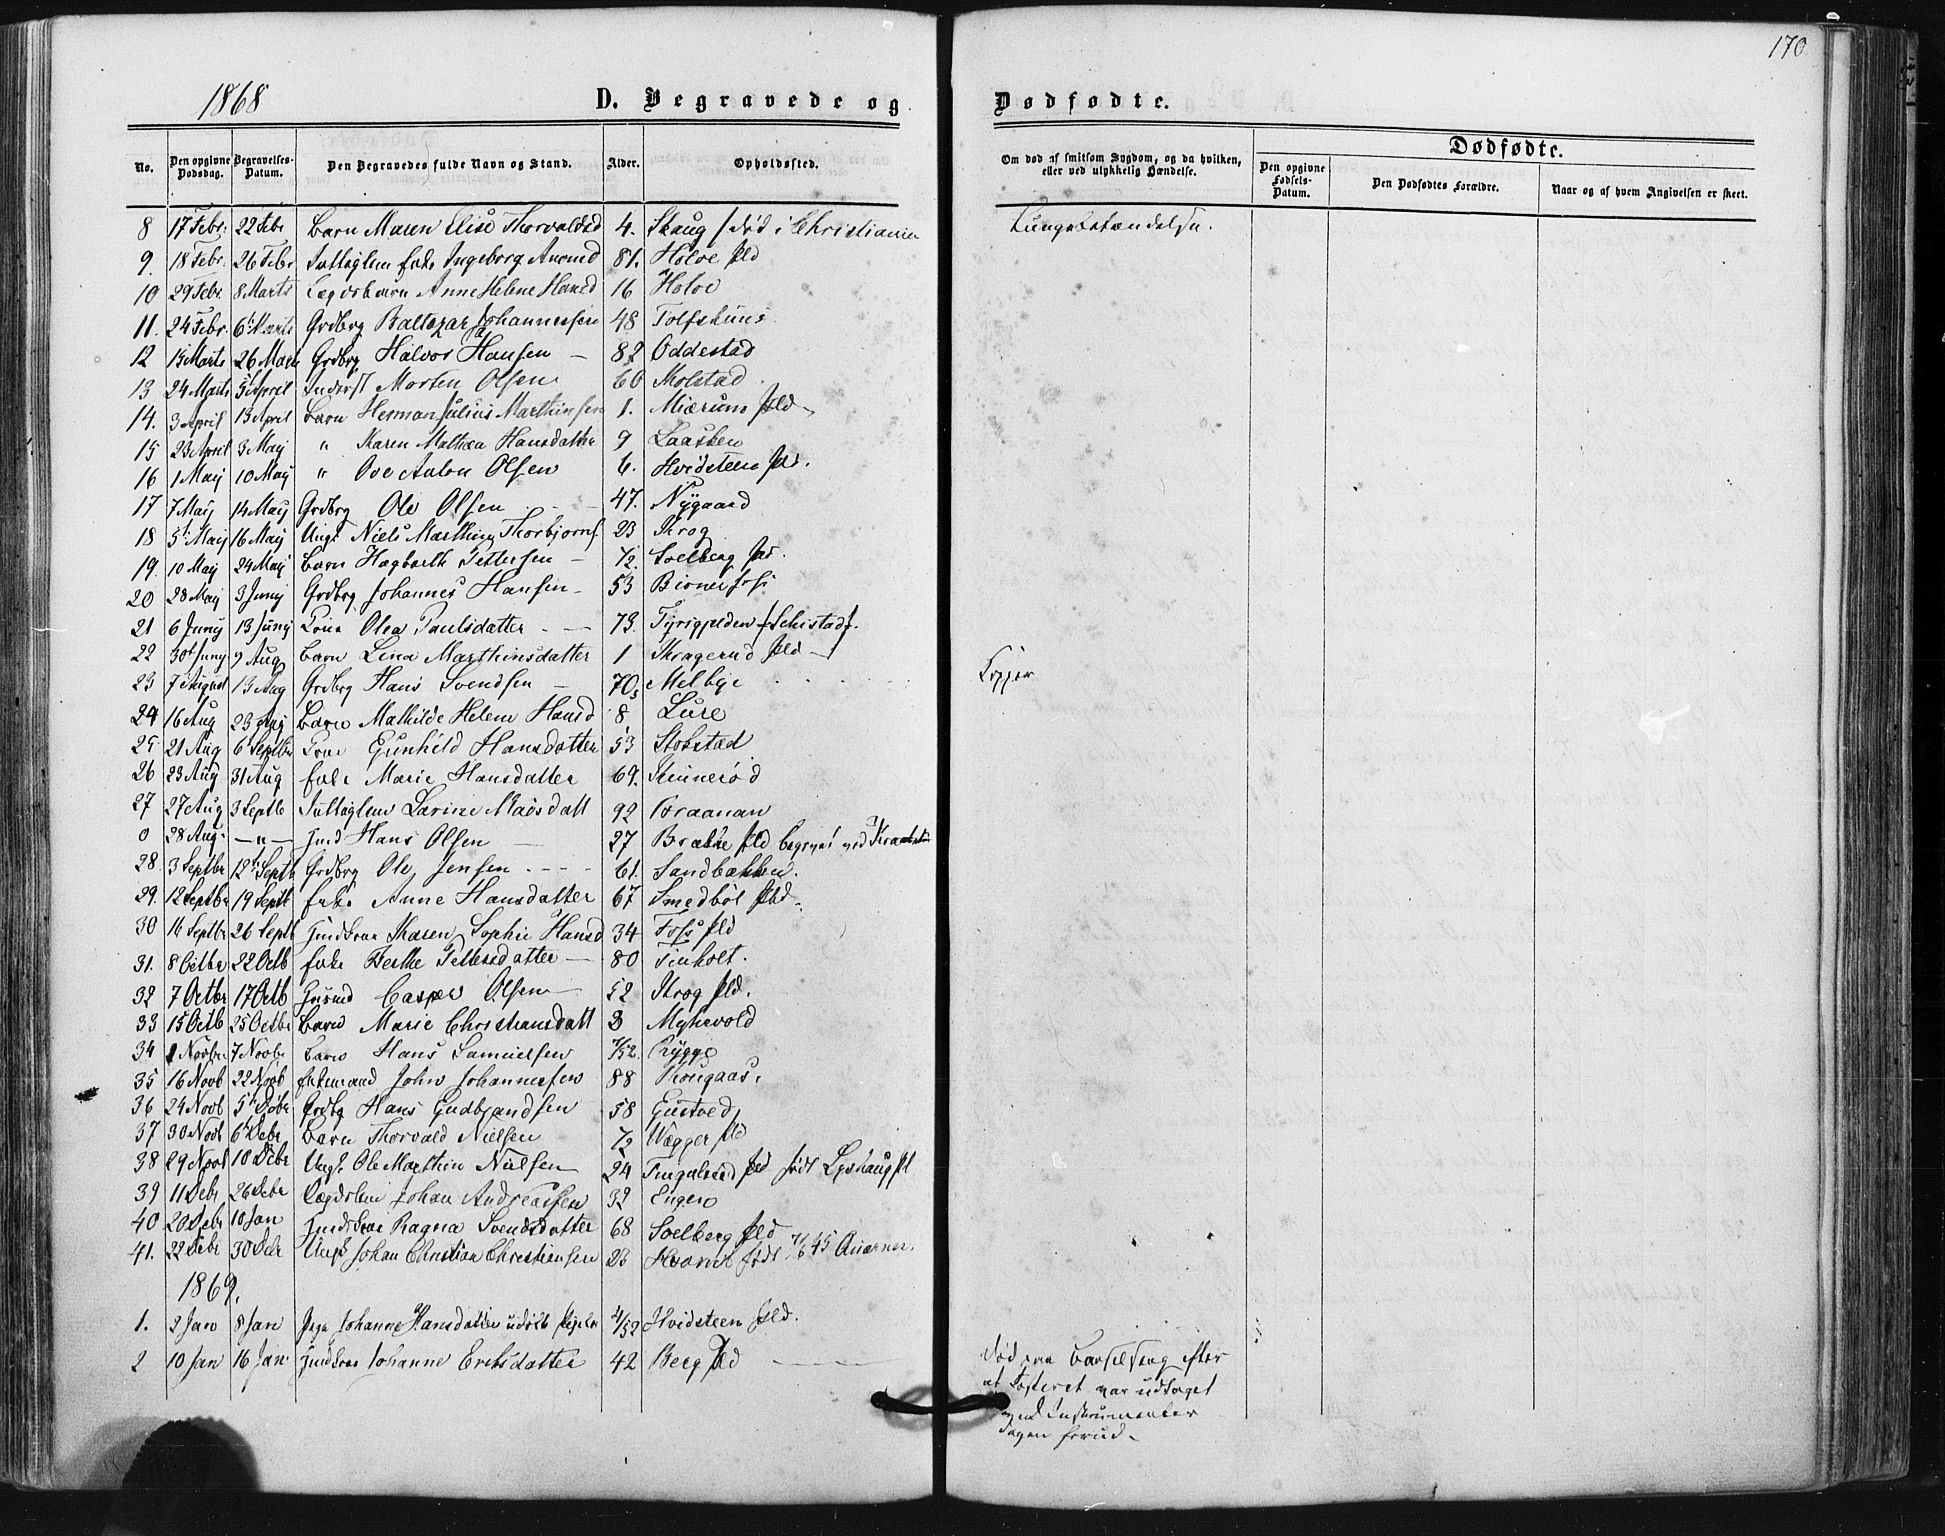 170
1868 D. Begravede og Dødfødte.
No. Den opgivne Dødsdag. Begravelses-Datum. Den Begravedes fulde Navn og Stand. Alder. Opholdssted.
Om død af smitsom Sygdom, og da hvilken, eller ved ulykkelig Hændelse.
Dødfødte.
Den opgivne Fødsels-Datum. Den Dødfødtes Forældre. Naar og af hvem Angivelsen er skeet.
8 17 Febr: 22 Febr Barn Maren Elise Thorvaldsd 4. Skaug / død i Christiania Lungebetændelse.
9. 18 Febr. 26 Febr Ingeborg 81. Holøe Pld
10 29 Febr. 8 Marts Lægdsbarn Anne Helene Hansd 16 Holøe
11. 24 Febr. 6 Marts Grdbrg Baltazar Johannessen 48
12 15 Marts 26 Marts Grdbrg Halvor Hansen 82 Oddestad
13 24 Marts 5 April Inderst Morten Olsen 60 Kolstad
14. 3 April 13 April Barn Herman Julius Marthinsen 1. Miærum Pld
15 23 April 3 Maij " Karen Mathea Hansdatter 9 Laasken
16 1 Maij 10 Maij " Ove Anton Olsen 6. Hvidsteen Pld.
17 7 Maij 14 Maij Grdbrg Ole Olsen 47. Nygaard
18 5 Maij 16 Maij Ungk Niels Marthin Thorbjørns 23 Krog
19. 10 Maij 24 Maij Barn Hagbarth Pettersen 1/2. Solberg Pld.
20 28 Maij 3 Junij Grdbrg Johannes Hansen 53
21 6 Junij 13 Junij Kone Olea Paulsdatter 73. Tyrigjelden
22 30 Junij 9 Aug Barn Lina Marthinsdatter 1 Kragerud Pld
23 7 August 13 Aug Grdbrg Hans Svendsen 70 Melbye
Kopper
24 16 Aug 23 Aug Barn Mathilde Helene Hansd 8 Lure
25 21 Aug 6 Septbr Kone Gunhild Hansdatter 53 Stokstad
26 23 Aug 31 Aug Enke Marie Hansdatter 69. Kinnerød
27 27 Aug 3 Septb Larine Madsdatt 92 Braanan
0 28 Aug - " - Ind Hans Olsen 27 Brække Pld
28. 3 Septbr 12 Septb Grdbrg Ole Jensen 61. Sandbækken.
29. 12 Septbr 19 Septb Enke Anne Hansdatter 67 Smedbøl Pld
30 16 Septbr 26 Septb Karen Sophie Hansd 34 Foss Pld
31. 8 Octbr 22 Octb Enke Berthe Pettersdatter 80 Finholt.
32 7 Octbr 17 Octb Gusmd Casper Olsen 52 Krog Pld.
33 15 Octb 25 Octbr Barn Marie Christiansdatt 3 Myhrvold
34 1 Novbr 7 Novbr Barn Hans Samuelsen 7/52. Rygge
35 16 Novb 22 Novb Enkemand John Johannessen 88 Kougaas.
36 24 Novb 5 Debr Grdbg Hans Gudbrandsen 58 Gustved
37 30 Novb 6 Debr Barn Thorvald Nielsen 1/2 Wægger Pld
38 29 Novb 10 Debr Ungk. Ole Marthin Nielsen 24 Fugalsrød Pld født Lyshaug Pl
39 11 Debr 26 Debr Lægdslem Johan Andreassen 32 Engen
40 20 Debr 10 Jan Ragna Svendsdatter 68 Solberg Pld
41. 22 Debr 30 Debr Ungk Johan Christian Christiansen 23 født 7/6 45
1869.
1. 2 Jan 8 Jan Pige Johanne Hansdatter 4/52 Hvidsteen Pld.
2 10 Jan 16 Jan. Johanne Eriksdatter 42 Berg Pld
Død paa Barselseng efter
at Fosteret var udtaget
med Instrumenter
dagen forud.